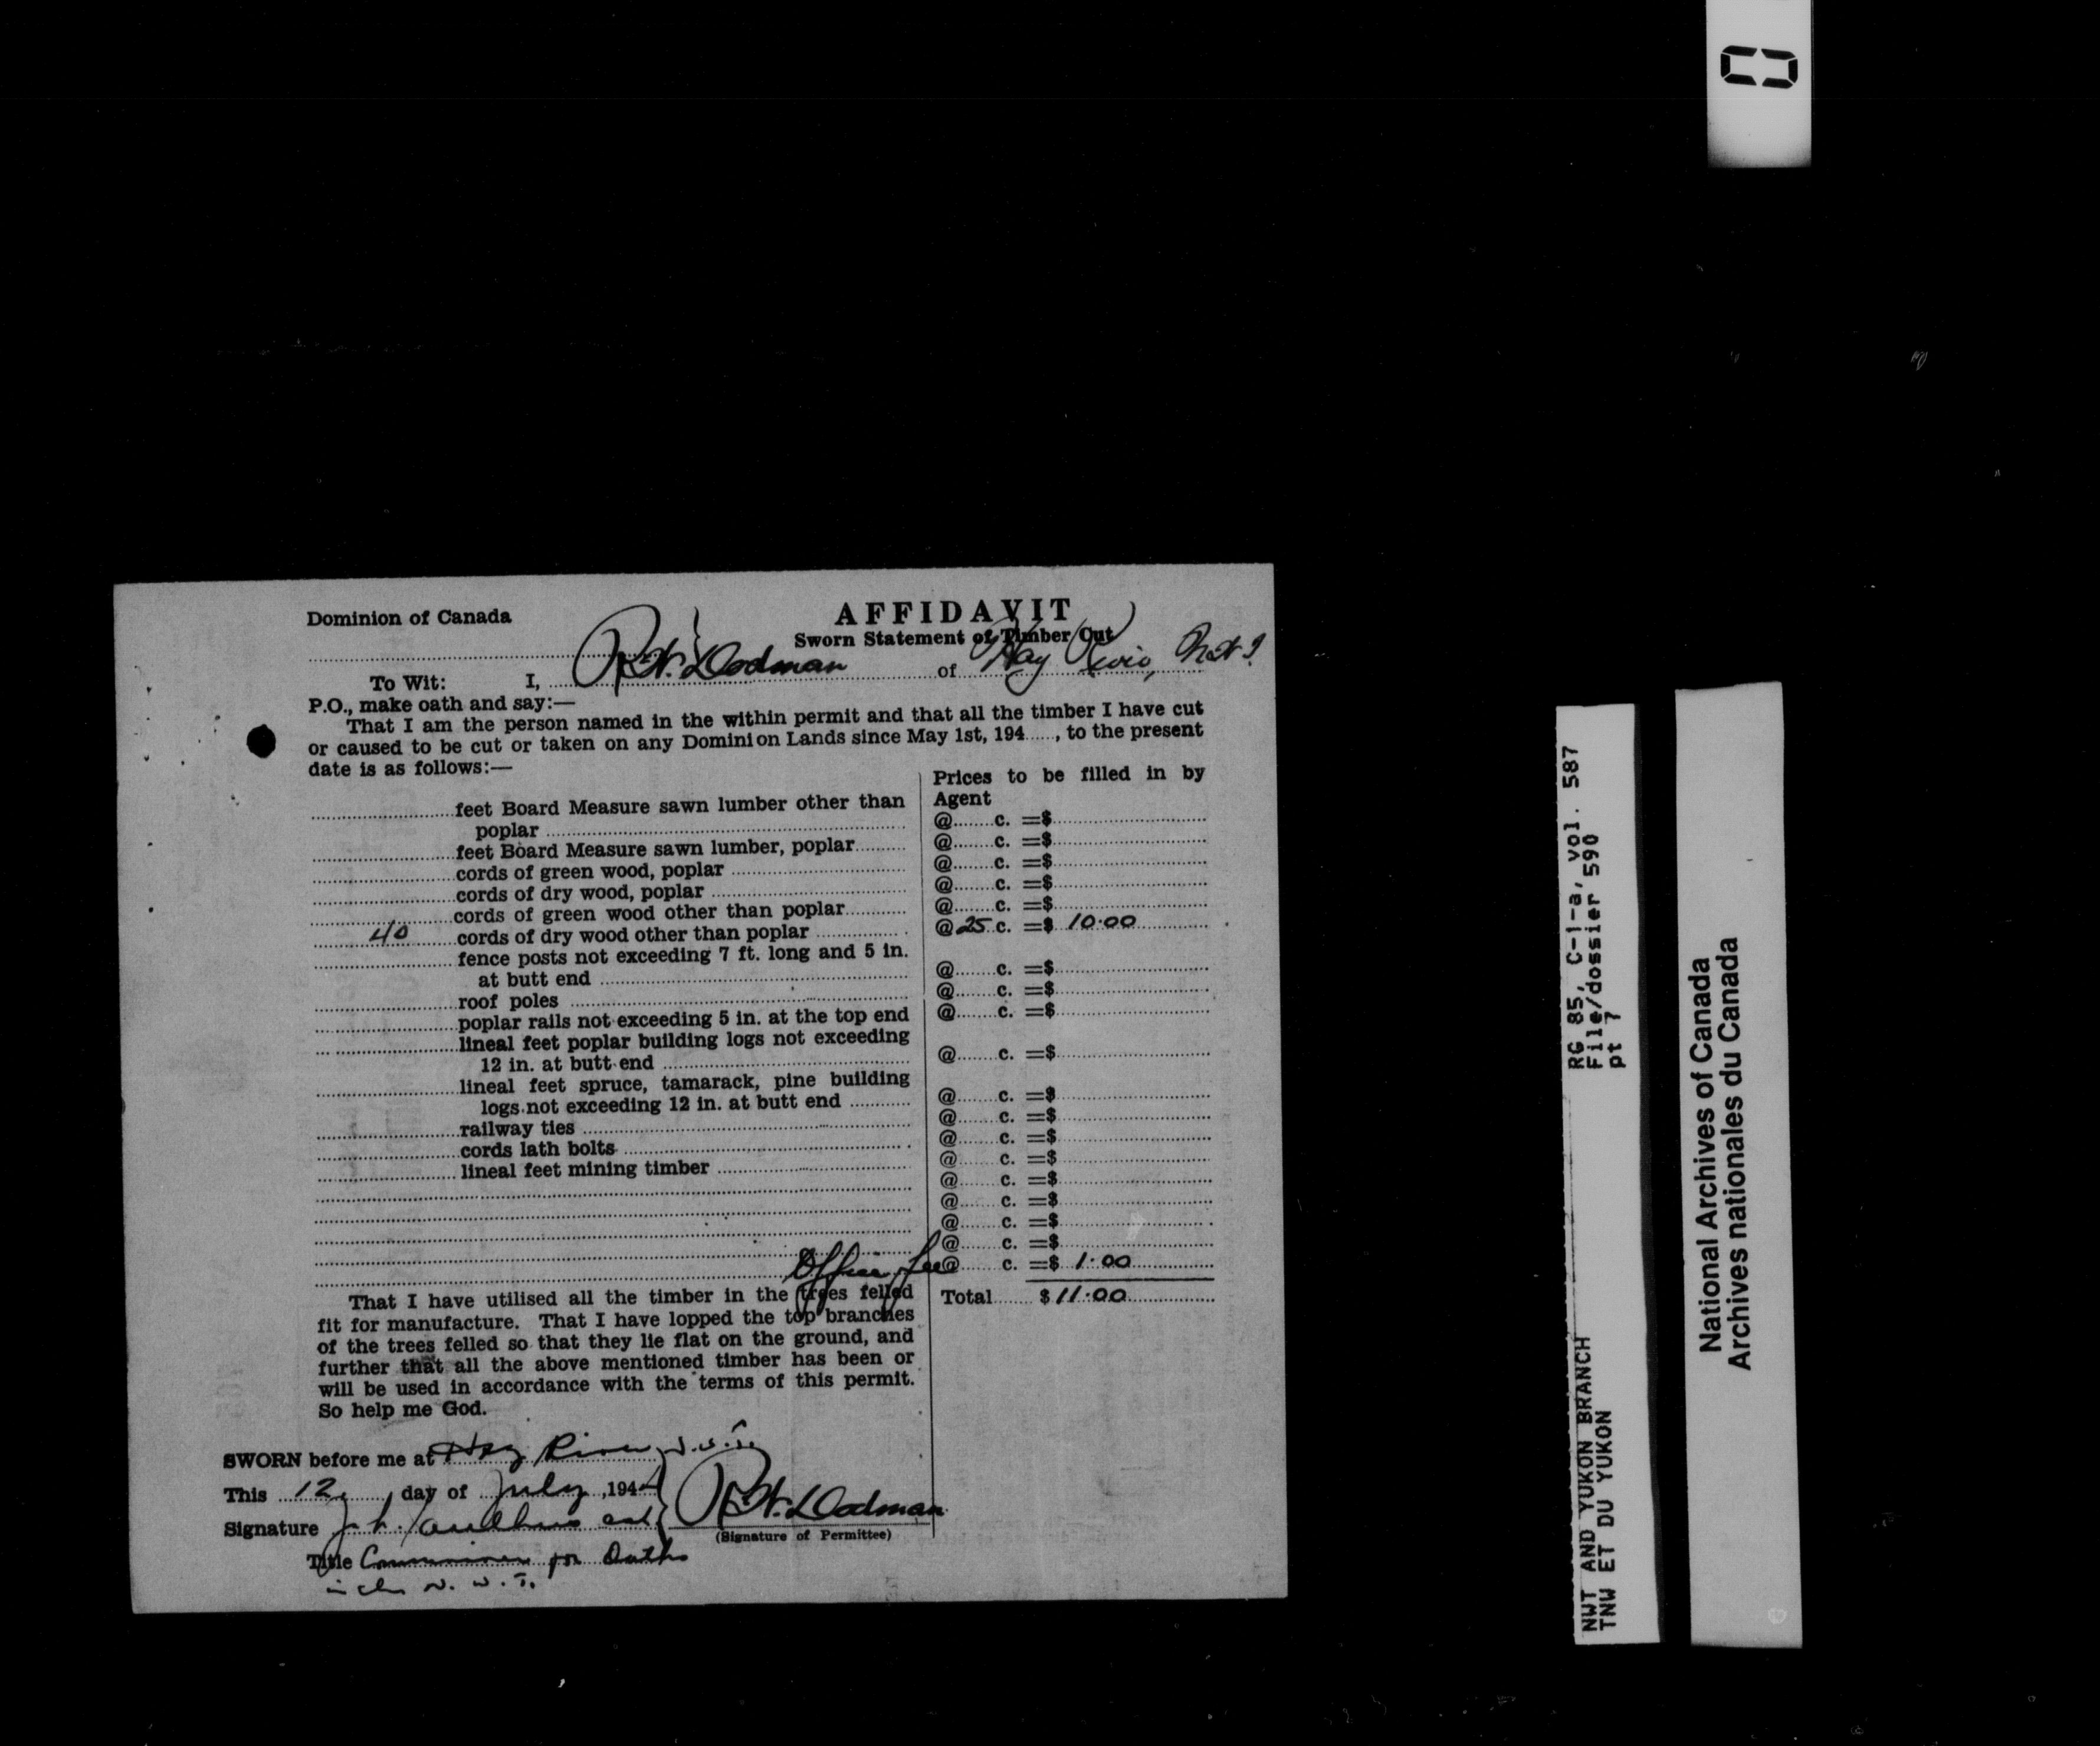 Dominion of Canada
AFFIDAVIT
Sworn Statement of Timber Cut
To Wit: I, R.W. Dodman of Hay River, N.W.T.
P.O., make oath and say:—
That I am the person named in the within permit and that all the timber I have cut
or caused to be cut or taken on any Dominion Lands since May 1st, 194......, to the present
date is as follows:—
Prices to be filled in by
Agent
feet Board Measure sawn lumber other than
poplar @ c. =$
feet Board Measure sawn lumber, poplar @ c. =$
cords of green wood, poplar @ c. =$
cords of dry wood, poplar @ c. =$
cords of green wood other than poplar @ c. =$
40 cords of dry wood other than poplar @ 25 c. =$ 10.00
fence posts not exceeding 7 ft. long and 5 in.
at butt end @ c. =$
roof poles @ c. =$
poplar rails not exceeding 5 in. at the top end @ c. =$
lineal feet poplar building logs not exceeding
12 in. at butt end @ c. =$
lineal feet spruce, tamarack, pine building
logs not exceeding 12 in. at butt end @ c. =$
railway ties @ c. =$
cords lath bolts @ c. =$
lineal feet mining timber @ c. =$
@ c. =$
@ c. =$
@ c. =$
@ c. =$
Office fee @ c. =$ 1.00
Total $ 11.00
That I have utilised all the timber in the trees felled
fit for manufacture. That I have lopped the top branches
of the trees felled so that they lie flat on the ground, and
further that all the above mentioned timber has been or
will be used in accordance with the terms of this permit.
So help me God.
SWORN before me at Hay River, N.W.T.
This 12 day of July, 1944
R.W. Dodman
Signature
(Signature of Permittee)
Title Commissioner for Oaths
in the N.W.T.
RG 85, C-1-a, vol. 587
File/dossier 590
pt 7
NWT AND YUKON BRANCH
TNW ET DU YUKON
National Archives of Canada
Archives nationales du Canada